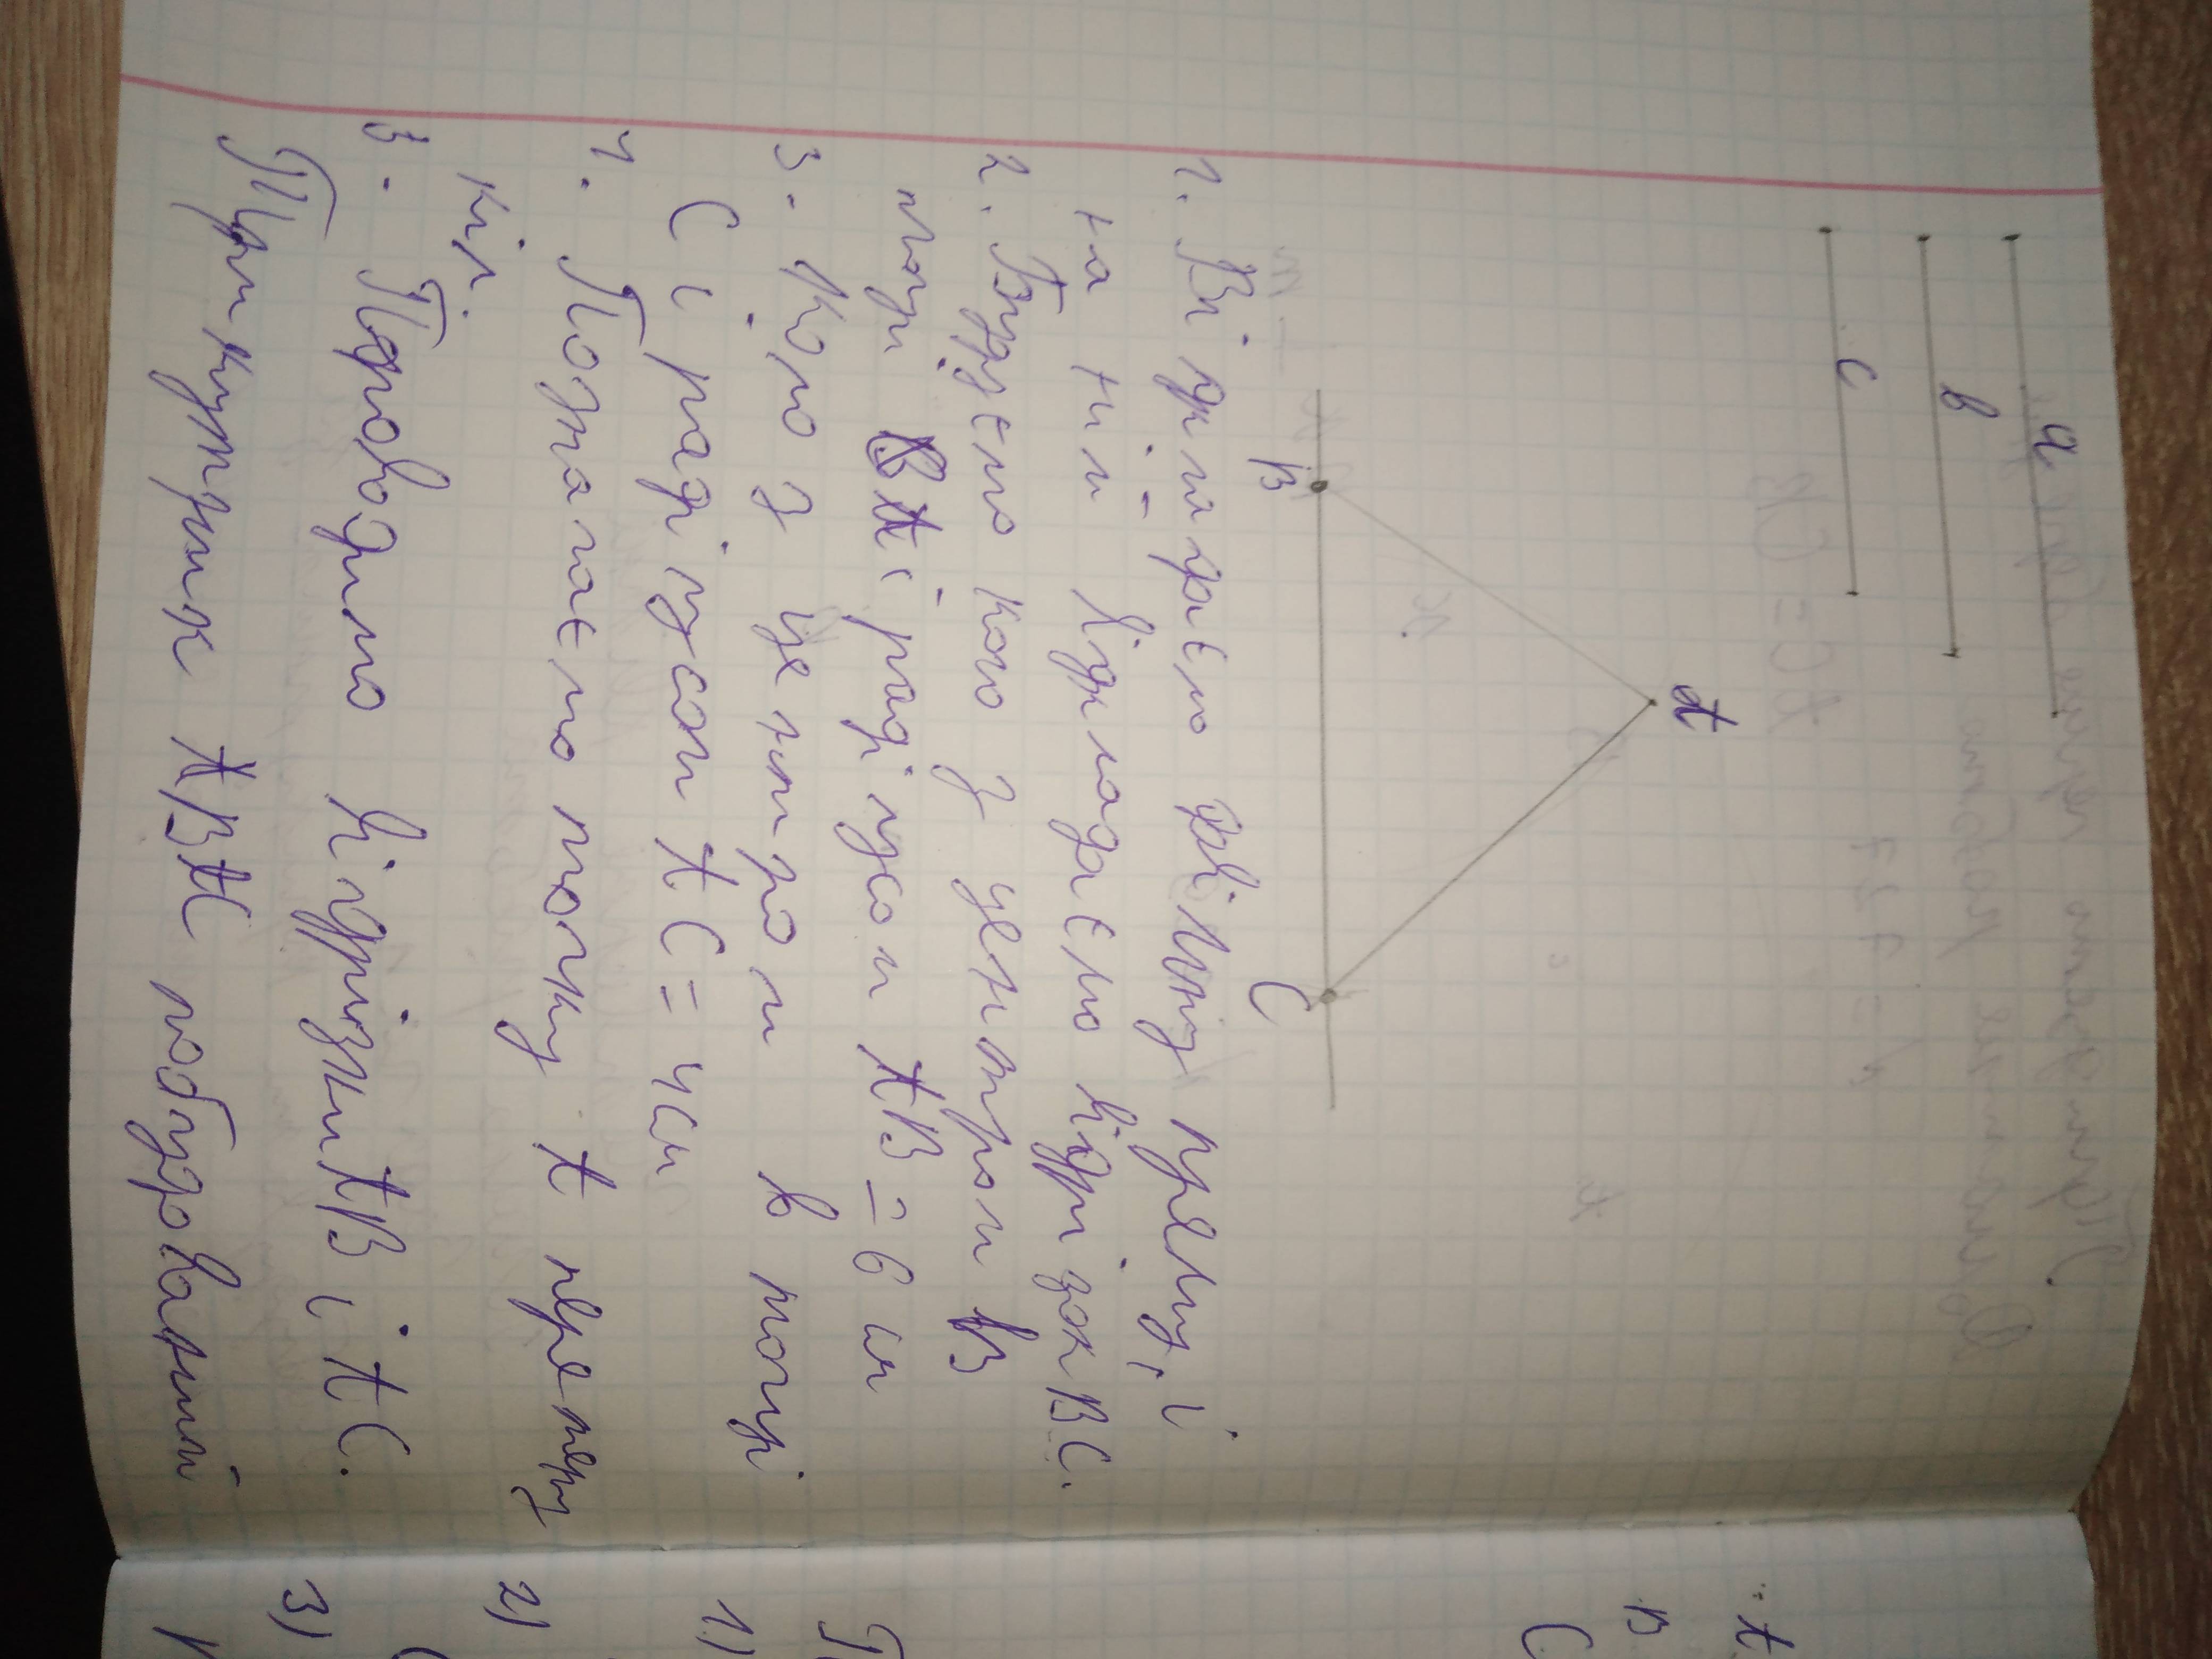 a
b
c
A
B
C
1. Відмічаємо довільну пряму, і
на ній відкладаємо відрізок BC.
2. Будуємо коло з центром в
точці B і радіусом AB = 6 см
3. Коло з центром в точці
C і радіусом AC = 4 см
4. Позначаємо точку A перетину
кіл.
5. Проводимо відрізки AB і AC.
Трикутник ABC побудований
A
B
C
1)
2)
3)